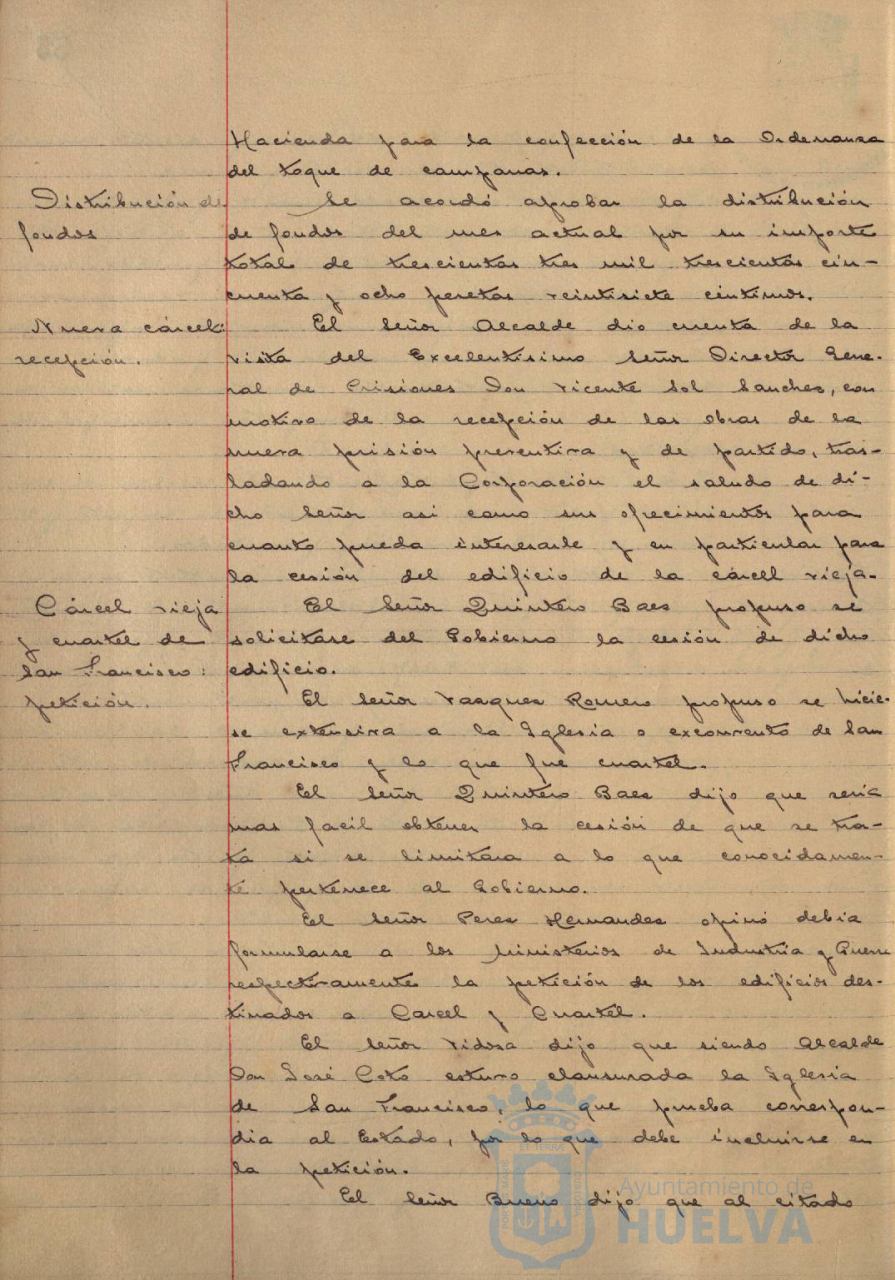 Hacienda para la confección de la Ordenanza
del toque de campanas.
Distribución de
fondos
Se acordó aprobar la distribución
de fondos del mes actual por su importe
total de trescientas tres mil trescientas cin-
cuenta y ocho pesetas veintisiete céntimos.
Nueva cárcel:
recepción.
El Señor Alcalde dio cuenta de la
visita del Excelentísimo Señor Director Gene-
ral de Prisiones Don Vicente Sol Sanches, con
motivo de la recepción de las obras de la
nueva prisión preventiva y de partido, tras-
ladando a la Corporación el saludo de di-
cho Señor asi como sus ofrecimientos para
cuanto pueda interesarle y en particular para
la cesión del edificio de la cárcel vieja.
Cárcel vieja
y cuartel de
San Francisco:
petición.
El Señor Quintero Baes propuso se
solicitase del Gobierno la cesión de dicho
edificio.
El Señor Vasques Romero propuso se hicie-
se extensiva a la Iglesia o exconvento de San
Francisco y lo que fue cuartel.
El Señor Quintero Baes dijo que sería
mas facil obtener la cesión de que se tra-
ta si se limitara a lo que conocidamen-
te pertenece al Gobierno.
El Señor Peres Hernandes opinó debia
formularse a los Ministerios de Industria y Guerra
respectivamente la petición de los edificios des-
tinados a Carcel y Cuartel.
El Señor Vidosa dijo que siendo Alcalde
Don José Coto estuvo clausurada la Iglesia
de San Francisco, lo que prueba correspon-
dia al Estado, por lo que debe incluirse en
la petición.
El Señor Bueno dijo que al citado
Ayuntamiento de
HUELVA